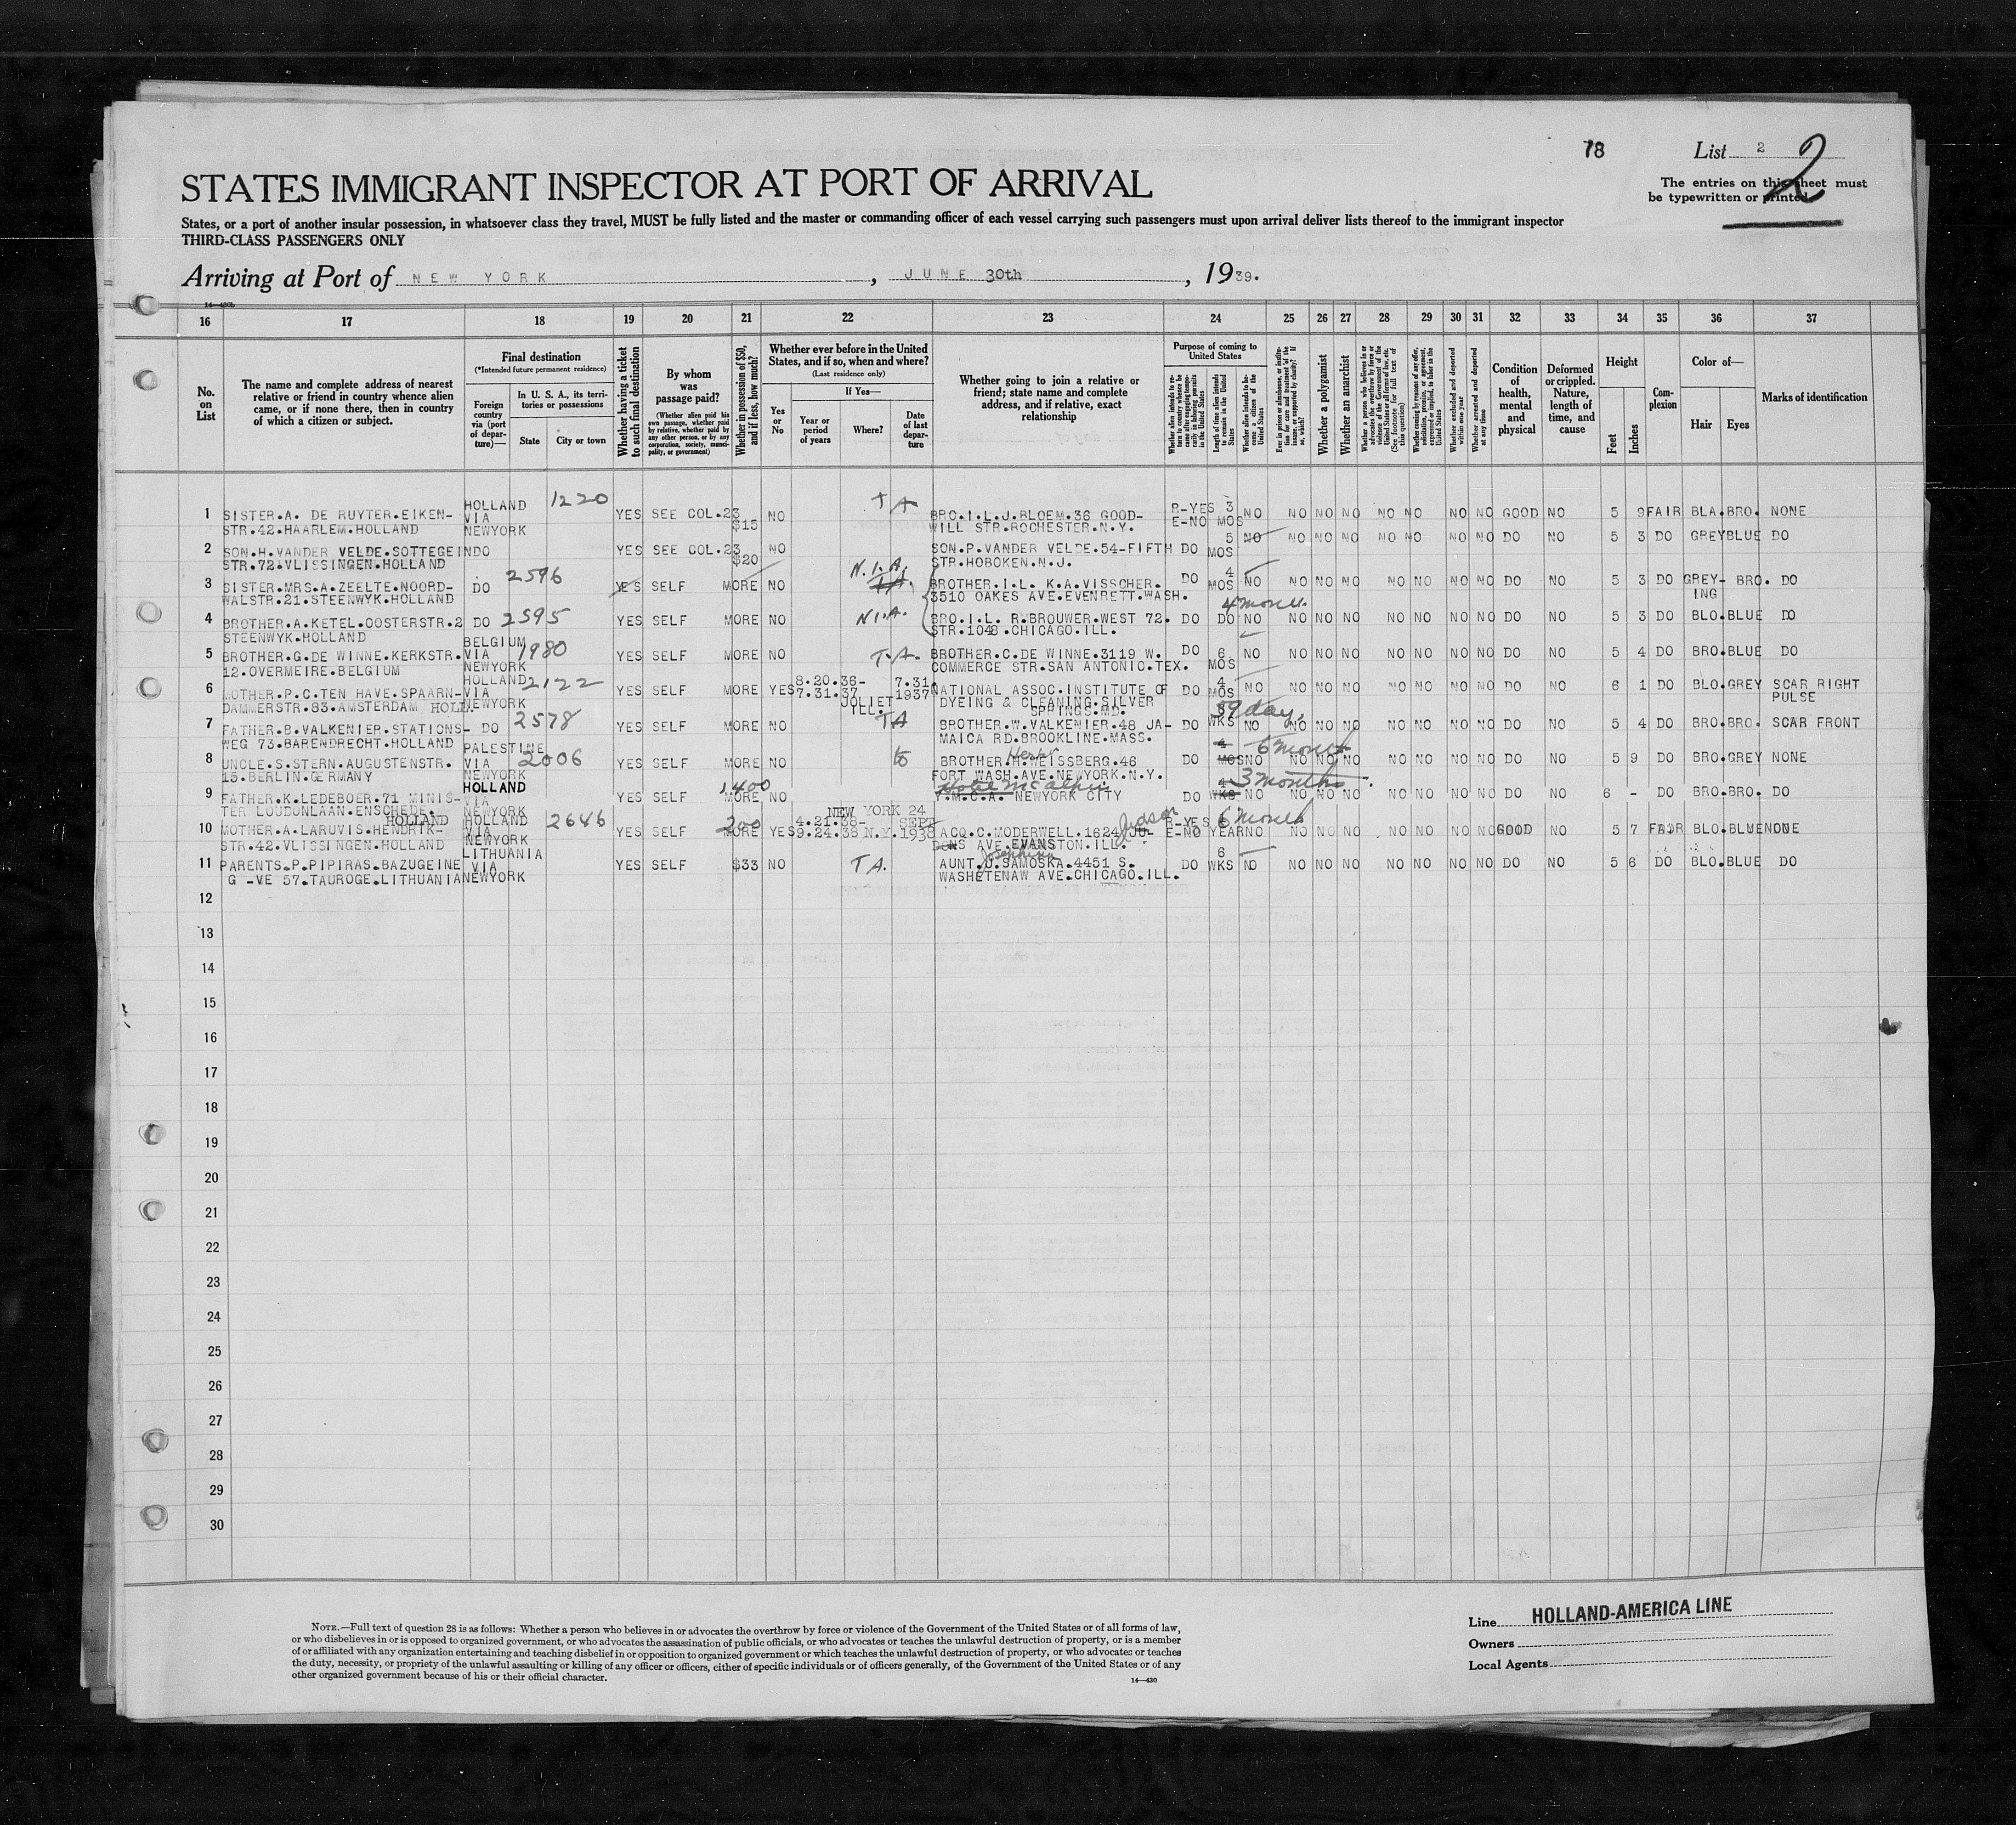 78
List 2
2
STATES IMMIGRANT INSPECTOR AT PORT OF ARRIVAL
The entries on this sheet must
be typewritten or printed.
States, or a port of another insular possession, in whatsoever class they travel, MUST be fully listed and the master or commanding officer of each vessel carrying such passengers must upon arrival deliver lists thereof to the immigrant inspector
THIRD-CLASS PASSENGERS ONLY
Arriving at Port of NEW YORK, JUNE 30th, 1939.
16 17 18 19 20 21 22 23 24 25 26 27 28 29 30 31 32 33 34 35 36 37
No. on List
The name and complete address of nearest
relative or friend in country whence alien
came, or if none there, then in country
of which a citizen or subject.
Final destination
(*Intended future permanent residence)
Foreign country via (port of departure)—
In U. S. A., its territories or possessions
State
City or town
Whether having a ticket to such final destination
By whom was passage paid?
(Whether alien paid his own passage, whether paid by relative, whether paid by any other person, or by any corporation, society, municipality, or government)
Whether in possession of $50, and if less, how much?
Whether ever before in the United
States, and if so, when and where?
(Last residence only)
Yes or No
If Yes—
Year or period of years
Where?
Date of last departure
Whether going to join a relative or
friend; state name and complete
address, and if relative, exact
relationship
Purpose of coming to United States
Whether alien intends to return to country whence he came after engaging temporarily in laboring pursuits in the United States
Length of time alien intends to remain in the United States
Whether alien intends to become a citizen of the United States
Whether a polygamist
Whether an anarchist
Whether excluded and deported within one year
Whether arrested and deported at any time
Condition of health, mental and physical
Deformed or crippled. Nature, length of time, and cause
Height
Feet
Inches
Complexion
Color of—
Hair
Eyes
Marks of identification
1 SISTER.A. DE RUYTER.EIKEN- HOLLAND 1220 YES SEE COL.23 NO T A BRO.I.L.J.BLOEM.36 GOOD- R-YES 3 NO NO NO NO NO NO NO NO GOOD NO 5 9 FAIR BLA.BRO. NONE
STR.42.HAARLEM.HOLLAND VIA NEWYORK $15 WILL STR.ROCHESTER.N.Y. E-NO MOS
2 SON.H.VANDER VELDE.SOTTEGEIN DO YES SEE COL.23 NO SON.P.VANDER VELDE.54-FIFTH DO 5 MOS NO NO NO NO NO NO NO NO DO NO 5 3 DO GREY BLUE DO
STR.72.VLISSINGEN.HOLLAND $20 STR.HOBOKEN.N.J.
3 SISTER.MRS.A.ZEELTE.NOORD- DO 2596 YES SELF MORE NO N.I.A. BROTHER.I.L. K.A.VISSCHER. DO 4 MOS NO NO NO NO NO NO NO NO DO NO 5 3 DO GREY-ING BRO. DO
WALSTR.21.STEENWYK.HOLLAND 3510 OAKES AVE.EVENRETT.WASH.
4 BROTHER.A.KETEL.OOSTERSTR.2 DO 2595 YES SELF MORE NO N.I.A. BRO.I.L. R.BROUWER.WEST 72. DO DO 4 months NO NO NO NO NO NO NO NO DO NO 5 3 DO BLO.BLUE DO
STEENWYK.HOLLAND STR.1048.CHICAGO.ILL.
5 BROTHER.G.DE WINNE.KERKSTR. BELGIUM VIA NEWYORK 1980 YES SELF MORE NO T.A. BROTHER.C.DE WINNE.3119 W. DO 6 MOS NO NO NO NO NO NO NO NO DO NO 5 4 DO BRO.BLUE DO
12.OVERMEIRE.BELGIUM COMMERCE STR.SAN ANTONIO.TEX.
6 MOTHER.P.C.TEN HAVE.SPAARN- HOLLAND VIA NEWYORK 2122 YES SELF MORE YES 8.20.36- 7.31.37 JOLIET ILL. 7.31. 1937 NATIONAL ASSOC.INSTITUTE OF DO 4 MOS NO NO NO NO NO NO NO NO DO NO 6 1 DO BLO.GREY SCAR RIGHT PULSE
DAMMERSTR.83.AMSTERDAM HOLL. DYEING & CLEANING.SILVER SPRINGS.MD.
7 FATHER.B.VALKENIER.STATIONS- DO 2578 YES SELF MORE NO TA BROTHER.W.VALKENIER.48 JA- DO WKS 59 days NO NO NO NO NO NO NO NO DO NO 5 4 DO BRO.BRO. SCAR FRONT
WEG 73.BARENDRECHT.HOLLAND MAICA RD.BROOKLINE.MASS.
8 UNCLE.S.STERN.AUGUSTENSTR. PALESTINE VIA NEWYORK 2006 YES SELF MORE NO BROTHER.H.WEISSBERG.46 Henry DO 4 MOS 6 months NO NO NO NO NO NO NO NO DO NO 5 9 DO BRO.GREY NONE
15.BERLIN.GERMANY FORT WASH.AVE.NEWYORK.N.Y.
9 FATHER.K.LEDEBOER.71 MINIS- HOLLAND VIA NEWYORK YES SELF MORE 1400 NO Hotel McAlpin Y.M.C.A. NEWYORK CITY DO 4 WKS 3 months NO NO NO NO NO NO NO NO DO NO 6 - DO BRO.BRO. DO
TER LOUDONLAAN.ENSCHEDE. HOLLAND
10 MOTHER.A.LARUVIS.HENDRIK- HOLLAND VIA NEWYORK 2646 YES SELF MORE 200 YES 4.21.38- 9.24.38 NEW YORK N.Y. 24 SEPT 1938 ACQ.C.MODERWELL.1624 JU- Judson R-YES E-NO YEAR 6 months NO NO NO NO NO NO NO NO GOOD NO 5 7 FAIR BLO.BLUE NONE
STR.42.VLISSINGEN.HOLLAND DONS AVE.EVANSTON.ILL.
11 PARENTS.P.PIPIRAS.BAZUGEINE LITHUANIA VIA NEWYORK YES SELF $33 NO T A. AUNT.J.SAMOSKA.4451 S. Josephine DO 6 WKS NO NO NO NO NO NO NO NO DO NO 5 6 DO BLO.BLUE DO
G -VE 57.TAUROGE.LITHUANIA WASHETENAW AVE.CHICAGO.ILL.
12
13
14
15
16
17
18
19
20
21
22
23
24
25
26
27
28
29
30
NOTE.—Full text of question 28 is as follows: Whether a person who believes in or advocates the overthrow by force or violence of the Government of the United States or of all forms of law,
or who disbelieves in or is opposed to organized government, or who advocates the assassination of public officials, or who advocates or teaches the unlawful destruction of property, or is a member
of or affiliated with any organization entertaining and teaching disbelief in or opposition to organized government or which teaches the unlawful destruction of property, or who advocates or teaches
the duty, necessity, or propriety of the unlawful assaulting or killing of any officer or officers, either of specific individuals or of officers generally, of the Government of the United States or of any
other organized government because of his or their official character.
14—430
Line HOLLAND-AMERICA LINE
Owners
Local Agents